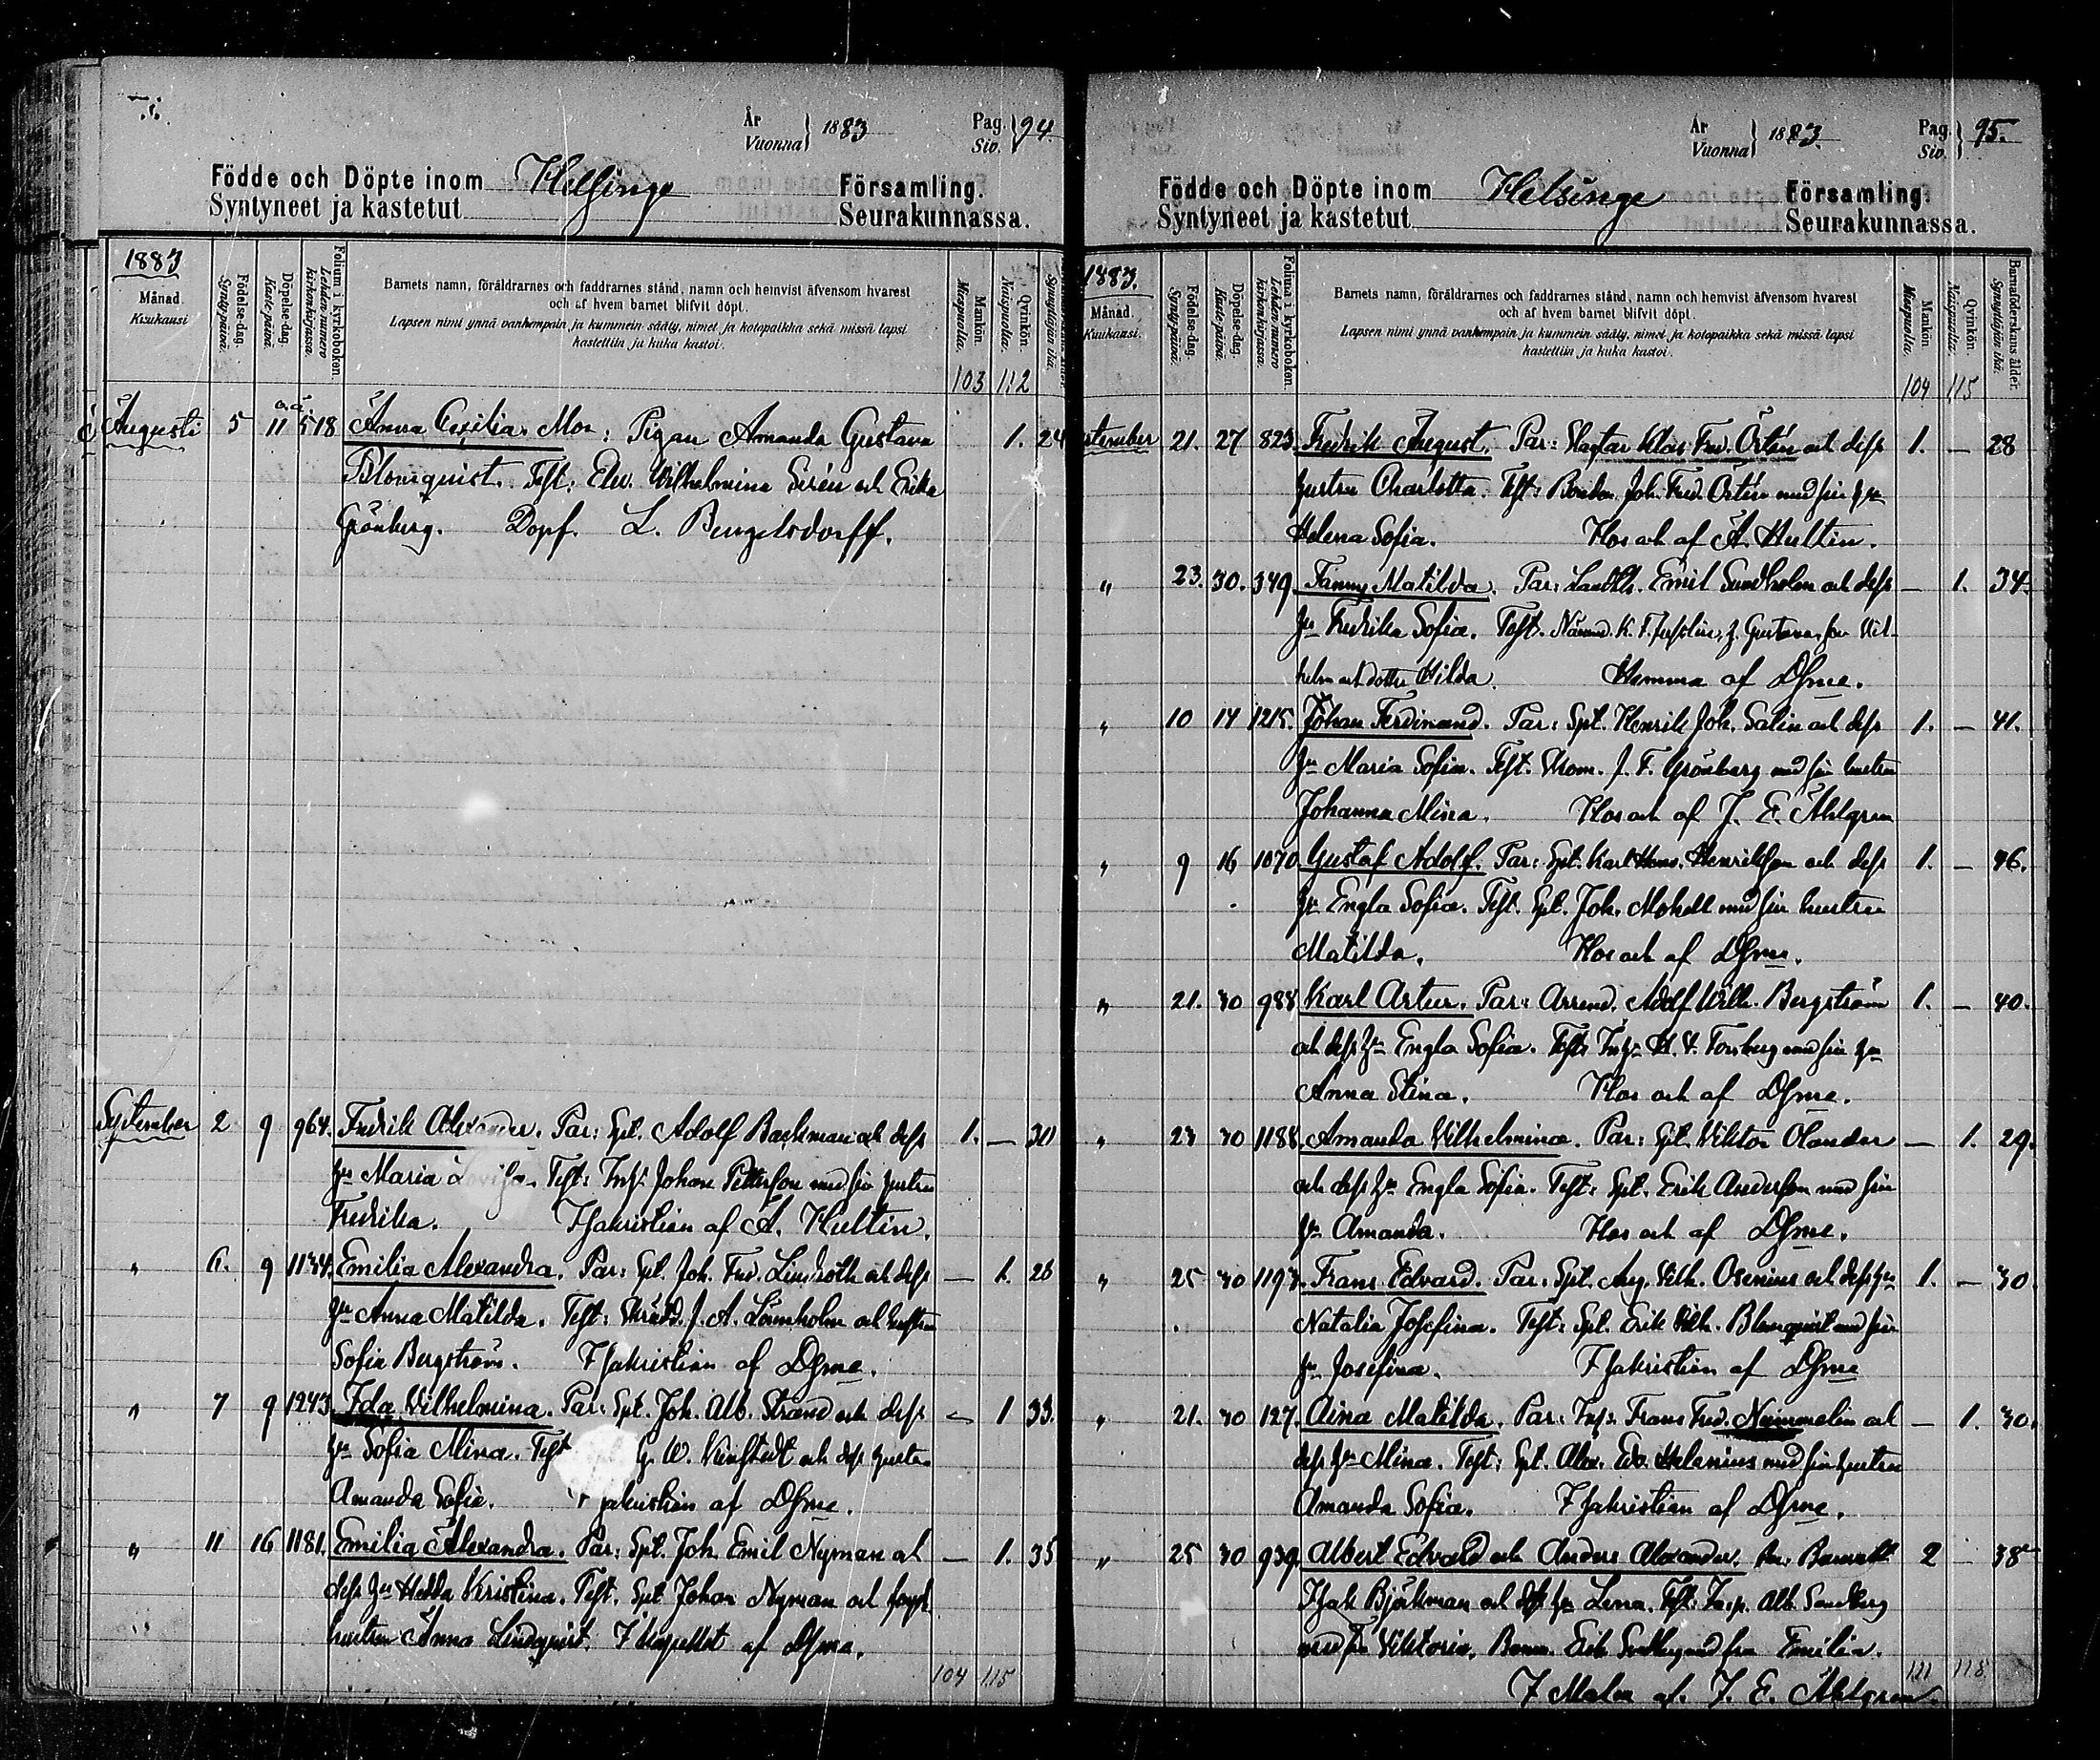 År
Vuonna } 1883
Pag.
Siv. } 94.
Födde och Döpte inom Helsinge Församling.
Syntyneet ja kastetut Seurakunnassa.
1883
Månad
Kuukausi
Födelse-dag.
Syntypäivä.
Döpelse-dag.
Kaste-päivä.
Folium i kyrkoboken.
Lehden-numero kirkonkirjassa.
Barnets namn, föräldrarnes och faddrarnes stånd, namn och hemvist äfvensom hvarest
och af hvem barnet blifvit döpt.
Lapsen nimi ynnä vanhempain ja kummein sääty, nimet ja kotopaikka sekä missä lapsi
kastettiin ja kuka kastoi.
Mankön.
Miespuolia.
Qvinkön.
Naispuolia.
103 112
Augusti 5 11 518 Anna Cecilia. Mor: Pigan Amanda Gustava 1. 24
Blomquist. Test: Elev. Wilhelmina Sirén och Erika
Grönberg. Dopf. L. Bengelsdorff.
September 2 9 964. Fredrik Alexander. Par: Spt. Adolf Backman och dess 1. — 30
hu Maria Lovisa. Test: Inh. Johan Pettersson med sin hustru
Fredrika. I sakristian af A. Hultin.
" 6. 9 1134. Emilia Alexandra. Par: Spt. Joh. Fred. Lindroth och dess — 1. 26
hu Anna Matilda. Test: Skrädd. J. A. Lönnholm och hustru
Sofia Bergström. I sakristian af Dsme.
" 7 9 1243. Ida Vilhelmina. Par: Spt. Joh. Alb. Strand och dess — 1 33.
hu Sofia Mina. Test G. W. och dess hustru
Amanda Sofia. I sakristian af Dsme.
" 11 16 1181. Emilia Alexandra. Par: Spt. Joh. Emil Nyman och — 1. 35
dess hu Hedda Kristina. Test. Spt Johan Nyman och
hustru Anna Lindqvist. I kapellet af Dsme.
104 115
År
Vuonna } 1883.
Pag.
Siv. } 95.
Födde och Döpte inom Helsinge Församling.
Syntyneet ja kastetut Seurakunnassa.
1883.
Månad.
Kuukausi.
Födelse-dag.
Syntypäivä.
Döpelse-dag.
Kaste-päivä.
Folium i kyrkoboken.
Lehden-numero kirkonkirjassa.
Barnets namn, föräldrarnes och faddrarnes stånd, namn och hemvist äfvensom hvarest
och af hvem barnet blifvit döpt.
Lapsen nimi ynnä vanhempain ja kummein sääty, nimet ja kotopaikka sekä missä lapsi
kastettiin ja kuka kastoi.
Mankön
Miespuolia.
Qvinkön.
Naispuolia.
Barnaföderskans ålder.
Synnyttäjän ikä.
104 115
21. 27 823. Fredrik August. Par: Slagtar Klas Fred. Örtén och dess 1. — 28
hustru Charlotta. Test: Bonden Joh. Fred. Örtén med sin hu
Helena Sofia. Hos och af A. Hultin.
" 23. 30. 349. Fanny Matilda. Par: Emil Sundholm och dess — 1. 34.
hu Fredrika Sofia. Test. K. F. h. Gustava, son Vil-
helm och dotter Hilda. Hemma af Dsme.
" 10 14 1215. Johan Ferdinand. Par: Spt. Henrik Joh. Salin och dess 1. — 41.
hu Maria Sofia. Test. J. F. Grönberg med sin hustru
Johanna Mina. Hos och af J. E. Ahlgren
" 9 16 1070 Gustaf Adolf. Par: Spt. Karl Henriksson och dess 1. — 46.
hu Engla Sofia. Test. Spt. Joh. Mohell med sin hustru
Matilda. Hos och af Dsme.
" 21. 30 988 Karl Artur. Par: Arrend. Adolf Wilh. Bergström 1. — 40.
och dess hu Engla Sofia. Test: Inh. Forsberg med sin hu
Anna Stina. Hos och af Dsme.
" 23 30 1188. Amanda Vilhelmina. Par: Spt. Viktor Olander — 1. 29.
och dess hu Engla Sofia. Test: Spt. Erik Andersson med sin
hu Amanda. Hos och af Dsme.
" 25 30 1193. Frans Edvard. Par: Spt. Aug. Vilh. Osenius och dess hu 1. — 30.
Natalia Josefina. Test: Spt. Erik Vilh. Blomqvist med sin
hu Josefina. I sakristian af Dsme
" 21. 30 127. Aina Matilda. Par: Inh. Frans Fred. Nummelin och — 1. 30.
dess hu Mina. Test: Spt. Alex. Edv. Helenius med sin hustru
Amanda Sofia. I sakristian af Dsme.
" 25 30 939. Albert Edvard och Anders Alexander. Par: 2 — 38
Isak Björkman och dess hu Lena. Test: Inh. Alb. Sandberg
med fru Viktoria, Erik med fru Emilia.
I Malm af J. E. Ahlgren.
111 118